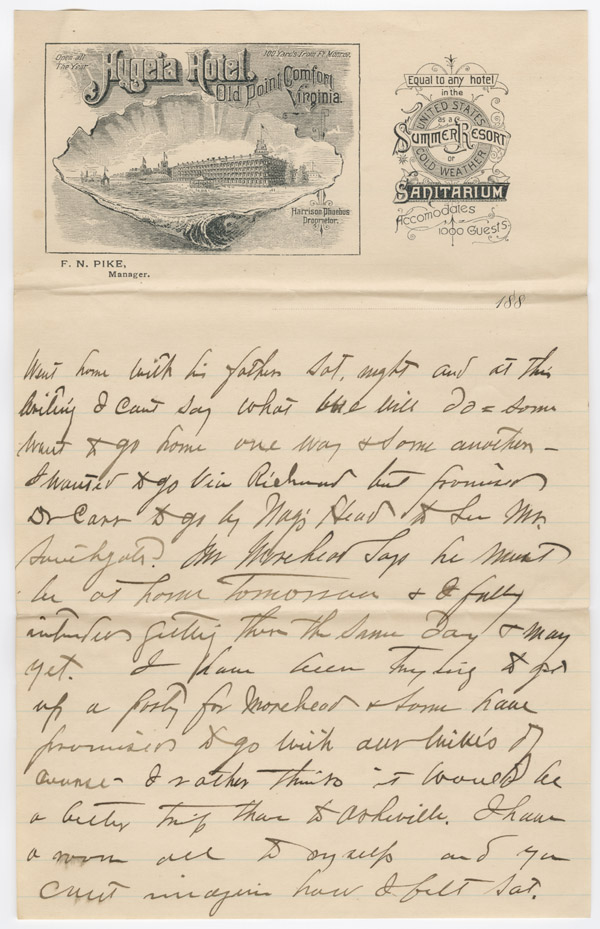 Open all
The Year.
180 Yards from Ft. Monroe.
Hygeia Hotel.
Old Point Comfort
Virginia.
Harrison Phoebus
Proprietor.
F. N. PIKE,
Manager.
Equal to any hotel
in the
UNITED STATES
as a
SUMMER RESORT
or
COLD WEATHER
SANITARIUM
Accomodates
1000 Guests
188
Went home with his father Sat. night and at this
writing I cant say what we will do = some
want to go home one way & some another -
I wanted to go via Richmond but promised
Dr Carr to go by Nags Head to see Mr.
Southgate. Mr Morehead says he must
be at home tomorrow & I fully
intended getting there the same day & may
yet. I have been trying to get
up a party for Morehead & some have
promised to go with our wives of
course - I rather think it would be
a better trip than to Asheville. I have
a room all to myself and you
cant imagine how I felt Sat.